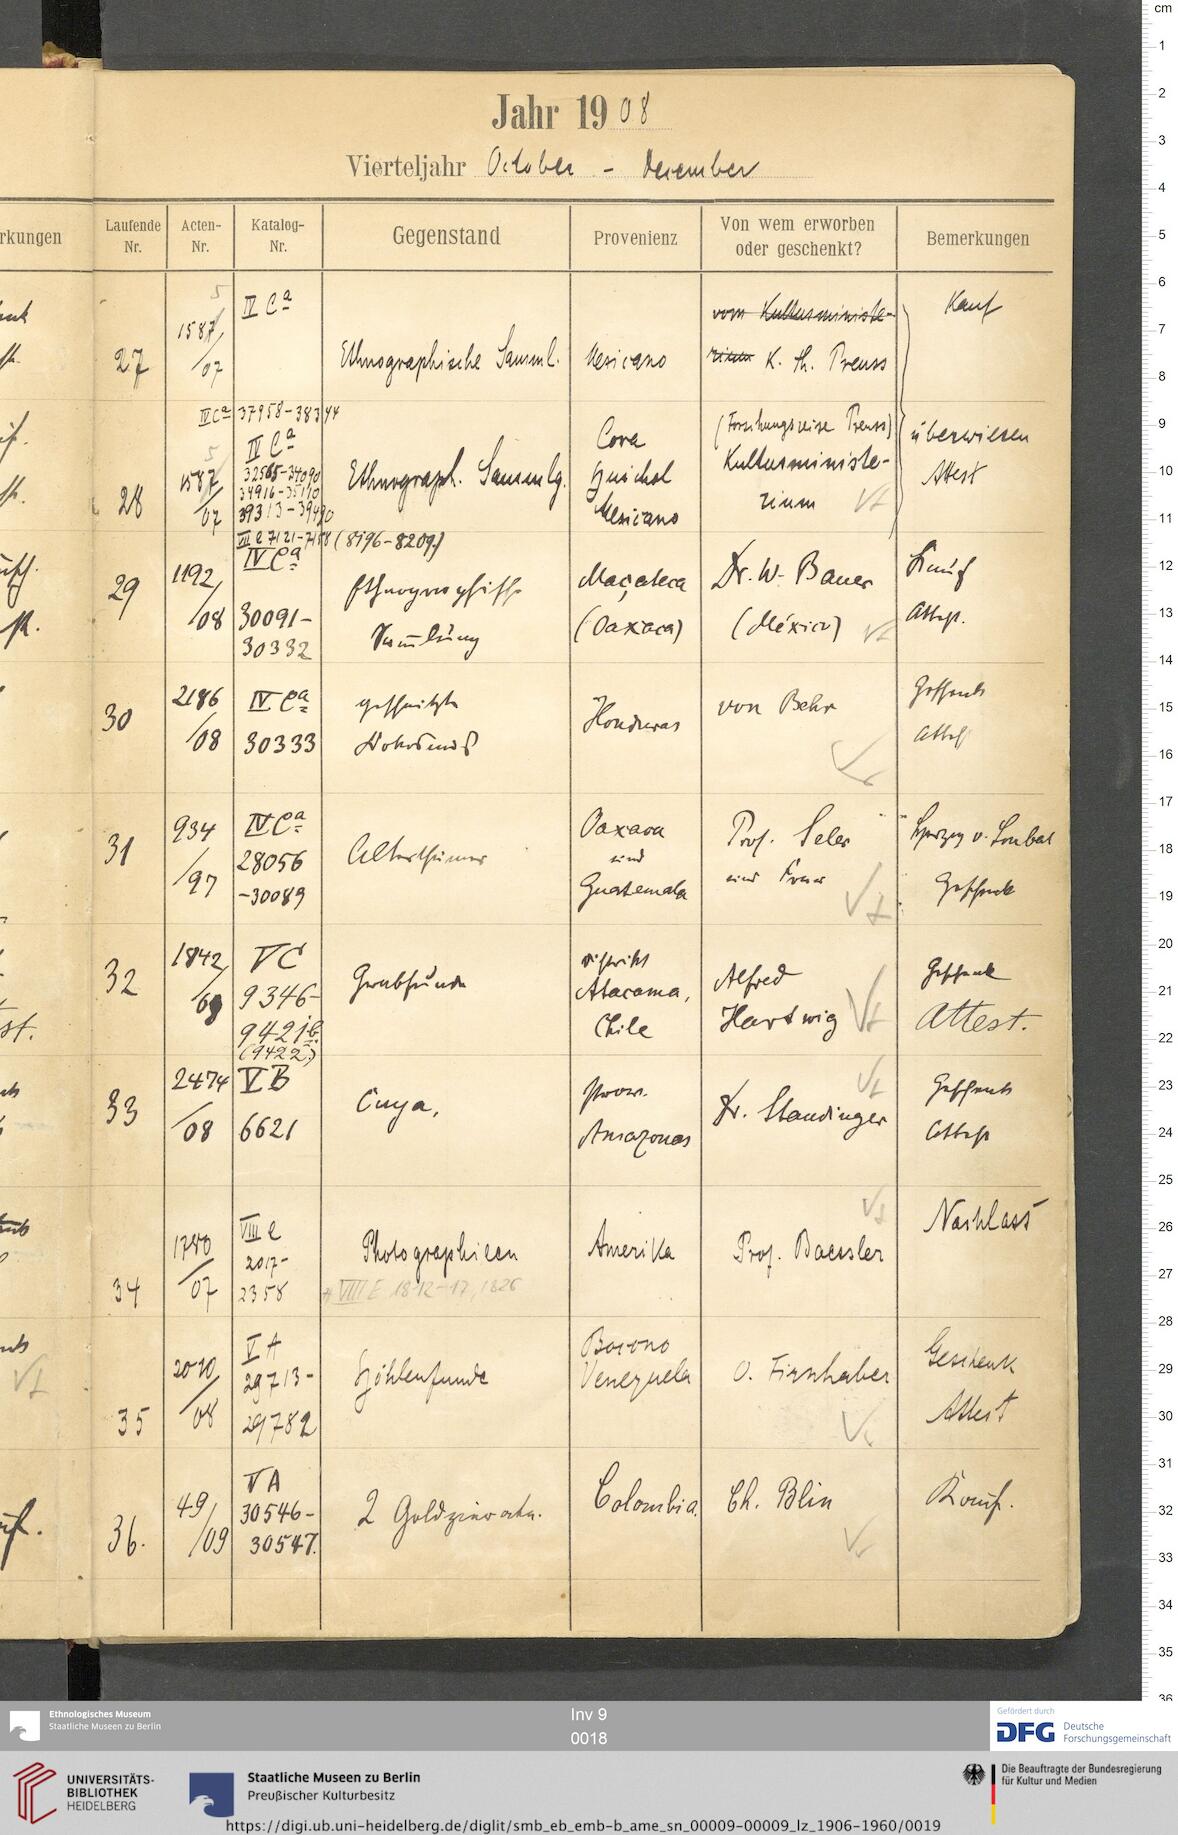 Jahr 1908
Vierteljahr October - December
rkungen
Laufende Nr.
Acten-Nr.
Katalog-Nr.
Gegenstand
Provenienz
Von wem erworben oder geschenkt?
Bemerkungen
27
1587/07
5
IV Ca
Ethnographische Samml.
Mexicano
vom Kultusministe-
rium K. Th. Preuss
Kauf
28
1587/07
5
IV Ca 37958-38344
IV Ca
32565-34090
34916-35110
39313-39490
VIII e 7121-7158 (8196-8209)
Ethnograph. Sammlg.
Cora
Huichol
Mexicano
(Forschungsreise Preuss)
Kultusministe-
rium
überwiesen
Attest
29
1192/08
IV Ca
30091-
30332
Ethnographische
Sammlung
Maçateca
(Oaxaca)
Dr. W. Bauer
(México)
Kauf
Attest.
30
2186/08
IV Ca
30333
geschnitzte
Kokosnuß
Honduras
von Behr
Geschenk
Attest
31
934/97
IV Ca
28056
-30089
Alterthümer
Oaxaca
und
Guatemala
Prof. Seler
und Frau
Herzog v. Loubat
Geschenk
32
1842/08
V C
9346-
9421b
(9422)
Grabfunde
District
Atacama,
Chile
Alfred
Hartwig
Geschenk
Attest.
33
2474/08
V B
6621
Cuya,
Prov.
Amazonas
Dr. Staudinger
Geschenk
Attest
34
1780/07
VIII e
2017-
2358
Photographieen
VIII E 1812-17, 1826
Amerika
Prof. Baessler
Nachlass
35
2020/08
V A
29713-
29782
Höhlenfunde
Bocono
Venezuela
O. Firnhaber
Geschenk
Attest
36.
49/09
V A
30546-
30547.
2 Goldzierate.
Colombia.
Ch. Blin
Kauf.
cm
1
2
3
4
5
6
7
8
9
10
11
12
13
14
15
16
17
18
19
20
21
22
23
24
25
26
27
28
29
30
31
32
33
34
35
36
Ethnologisches Museum
Staatliche Museen zu Berlin
Inv 9
0018
Gefördert durch
DFG Deutsche
Forschungsgemeinschaft
UNIVERSITÄTS-
BIBLIOTHEK
HEIDELBERG
Staatliche Museen zu Berlin
Preußischer Kulturbesitz
Die Beauftragte der Bundesregierung
für Kultur und Medien
https://digi.ub.uni-heidelberg.de/diglit/smb_eb_emb-b_ame_sn_00009-00009_lz_1906-1960/0019